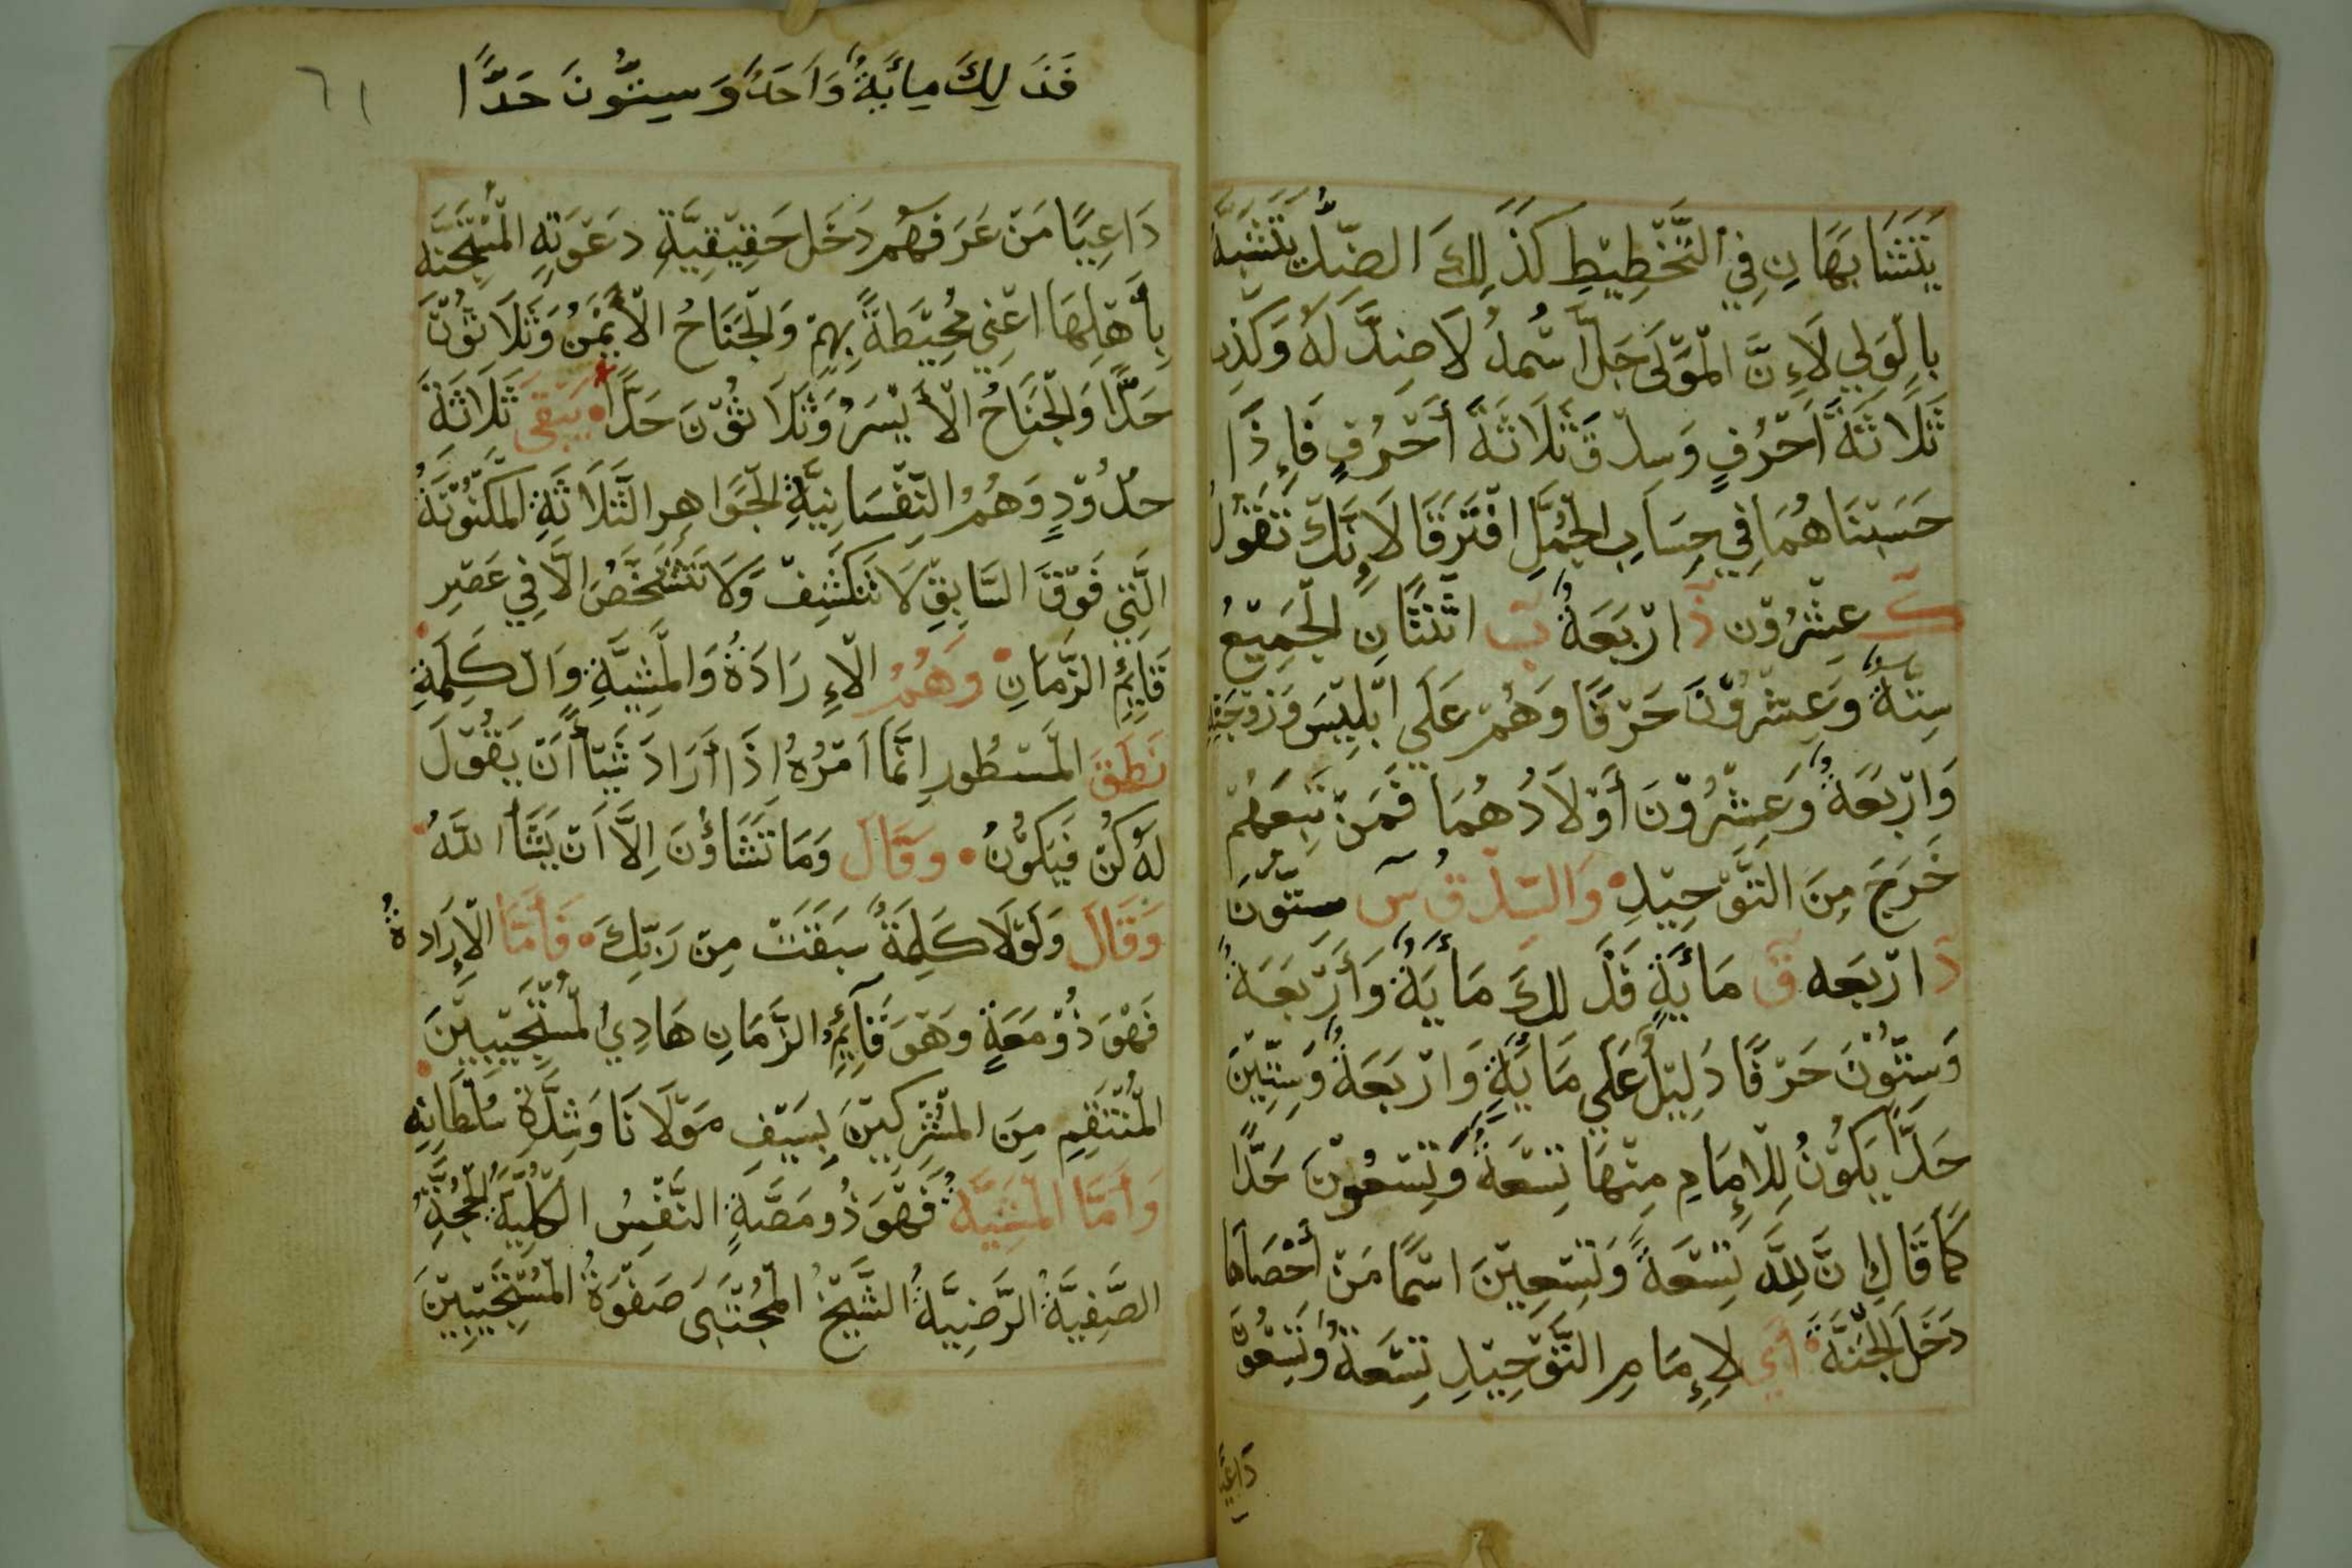 يَتَشَابَهَانِ فِي التَّخْطِيْطِ كَذَلِكَ الضِّدُّ يَتَشَبَّهُ
بِالْوَلِي لَاِنَّ الْمَوْلَى جَلَّ اسْمُهُ لَا ضِدَّ لَهُ وَكَذِب
ثَلَاثَةُ اَحْرُفٍ وَسِدْق ثَلَاثَةُ أَحْرُفٍ فَإِذَا
حَسَبْنَاهُمَا فِي حِسَابِ الْجُمَّلِ افْتَرَقَا لَاِنَّكَ تَقُوْلُ
كَ عِشْرُوْن ذَ ارْبَعَةُ بَ اثْنَتَانِ الْجَمِيْعُ
سِتَّةٌ وَعِشْرُوْنَ حَرْفًا وَهُمْ عَلَي ابْلِيْسَ وَزَوْجَتِهِ
وَارْبَعَةٌ وَعِشْرُوْنَ أَوْلَادُهُمَا فَمَنْ تَبِعَهُمْ
خَرَجَ مِنَ التَّوْحِيْدِ وَالسِّدْقُ سَ سِتُّوْنَ
دَ ارْبَعَه قَ مَائَةٍ فَذَلِكَ مَائَةٌ وَأَرْبَعَةٌ
وَسِتُّوْنَ حَرْفًا دَلِيْلٌ عَلَي مَائَةٍ وَارْبَعَةٌ وَسِتِّيْنَ
حَدًّا يَكُوْنُ لِلْإِمَامِ مِنْهَا تِسْعَةٌ وَتِسْعُوْنَ حَدًّا
كَمَا قَالَ إِنَّ لِلَّهِ تِسْعَةً وَتِسْعِيْنَ اسْمًا مَنْ أَحْصَاهَا
دَخَلَ الْجَنَّةَ أَي لِإِمَامِ التَّوْحِيْدِ تِسْعَةٌ وَتِسْعُوْنَ
دَاعِيًا
فَذَلِكَ مِائَةٌ وَاَحَدٌ وَسِتُّونَ حَدًّا
٦١
دَاعِيًا مَنْ عَرَفَهُم دَخَلَ حَقِيْقِيَّةِ دَعْوَتِهِ الْمُسْتَجِنَّه
بِأَهْلِهَا اعْنِي مُحِيْطَةً بِهِمْ وَالْجَنَاحُ الْأَيْمَنُ وَثَلَاثُوْنَ
حَدًّا وَالْجَنَاحُ الْأَيْسَرُ وَثَلَاثُوْنَ حَدًّا يَبْقَى ثَلَاثَةُ
حدُوْدٍ وَهُمُ النَّفْسَانِيَّةِ الْجَوَاهِرِ الثَّلَاثَةِ الْمَكْنُوْنَةُ
الَّتِي فَوْقَ السَّابِقِ لَا تَنْكَشِفْ وَلَا تَتَشَخَّصُ الَّا فِي عَصْرِ
قَائِمِ الزَّمَانِ وَهُمُ الْاِرَادَةُ وَالْمَشِيَّةِ وَالْكَلِمَةِ
نَطَقَ الْمَسْطُورِ انَّمَا اَمْرُهُ اذَا أَرَادَ شَيْأً اَنْ يَقُوْلَ
لَهُ كُنْ فَيَكُوْنُ وَقَالَ وَمَا تَشَاؤُنَ اِلَّا اَنْ يَشَأَ اللَّهُ
وَقَالَ وَلَوْلَا كَلِمَةٌ سَبَقَتْ مِنْ رَبِّكَ فَأَمَّا الْإِرَادةُ
فَهُوَ ذُوْ مَعَةٍ وَهْوَ قَآئِمُ الزَّمَانِ هَادِي الْمُسْتَجِيْبِيْنَ
الْمُنْتَقِمِ مِنَ الْمُشْرِكِيْنَ بِسَيْفِ مَوْلَانَا وَشِدَّةِ سُلْطَانِهِ
وَأَمَّا الْمَشِيَّةُ فَهُوَ ذُو مَصَّةٍ النَّفْسُ الْكُلِّيَّةُ الْحُجَّةُ
الصَّفِيَّةُ الرَّضِيَّةُ الشَّيْخُ الْمُجْتَبَى صَفْوَةُ الْمُسْتَجِيْبِيْنَ